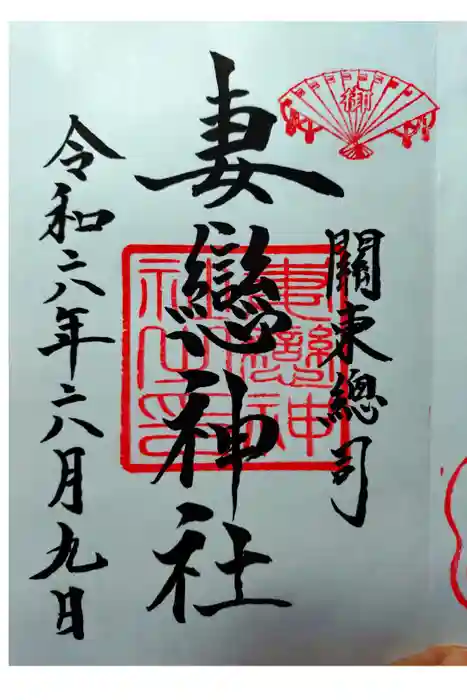 御
關東總司
妻戀神社
妻戀神社之印
令和六年六月九日